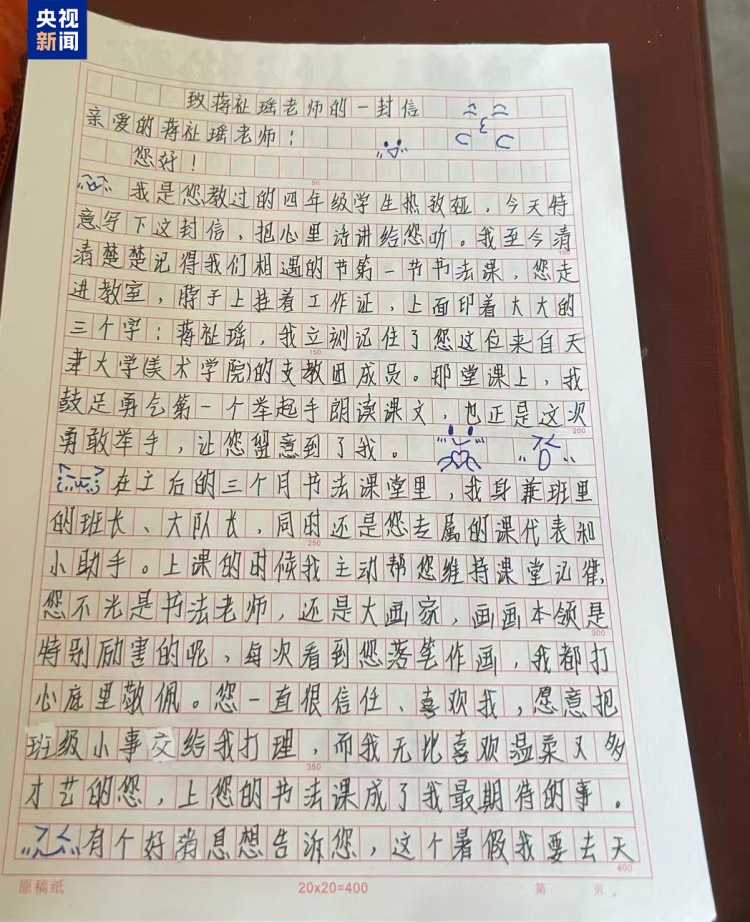 央视
新闻
致蒋祉瑶老师的一封信
亲爱的蒋祉瑶老师：
您好！
50
我是您教过的四年级学生热孜娅，今天特
意写下这封信，把心里话讲给您听。我至今清
100
清楚楚记得我们相遇的节第一节书法课，您走
进教室，脖子上挂着工作证，上面印着大大的
三个字：蒋祉瑶，我立刻记住了您这位来自天
150
津大学(美术学院)的支教团成员。那堂课上，我
鼓足勇气第一个举起手朗读课文，也正是这次
200
勇敢举手，让您留意到了我。
在立后的三个月书法课堂里，我身兼班里
的班长、大队长，同时还是您专属的课代表和
250
小助手。上课的时候我主动帮您维持课堂记律，
您不光是书法老师，还是大画家，画画本领是
300
特别励害的呢，每次看到您落笔作画，我都打
心底里敬佩。您一直很信任、喜欢我，愿意把
班级小事交给我打理，而我无比喜欢温柔又多
350
才艺的您，上您的书法课成了我最期待的事。
有个好消息想告诉您，这个暑假我要去天
400
原稿纸 20x20=400 第 页